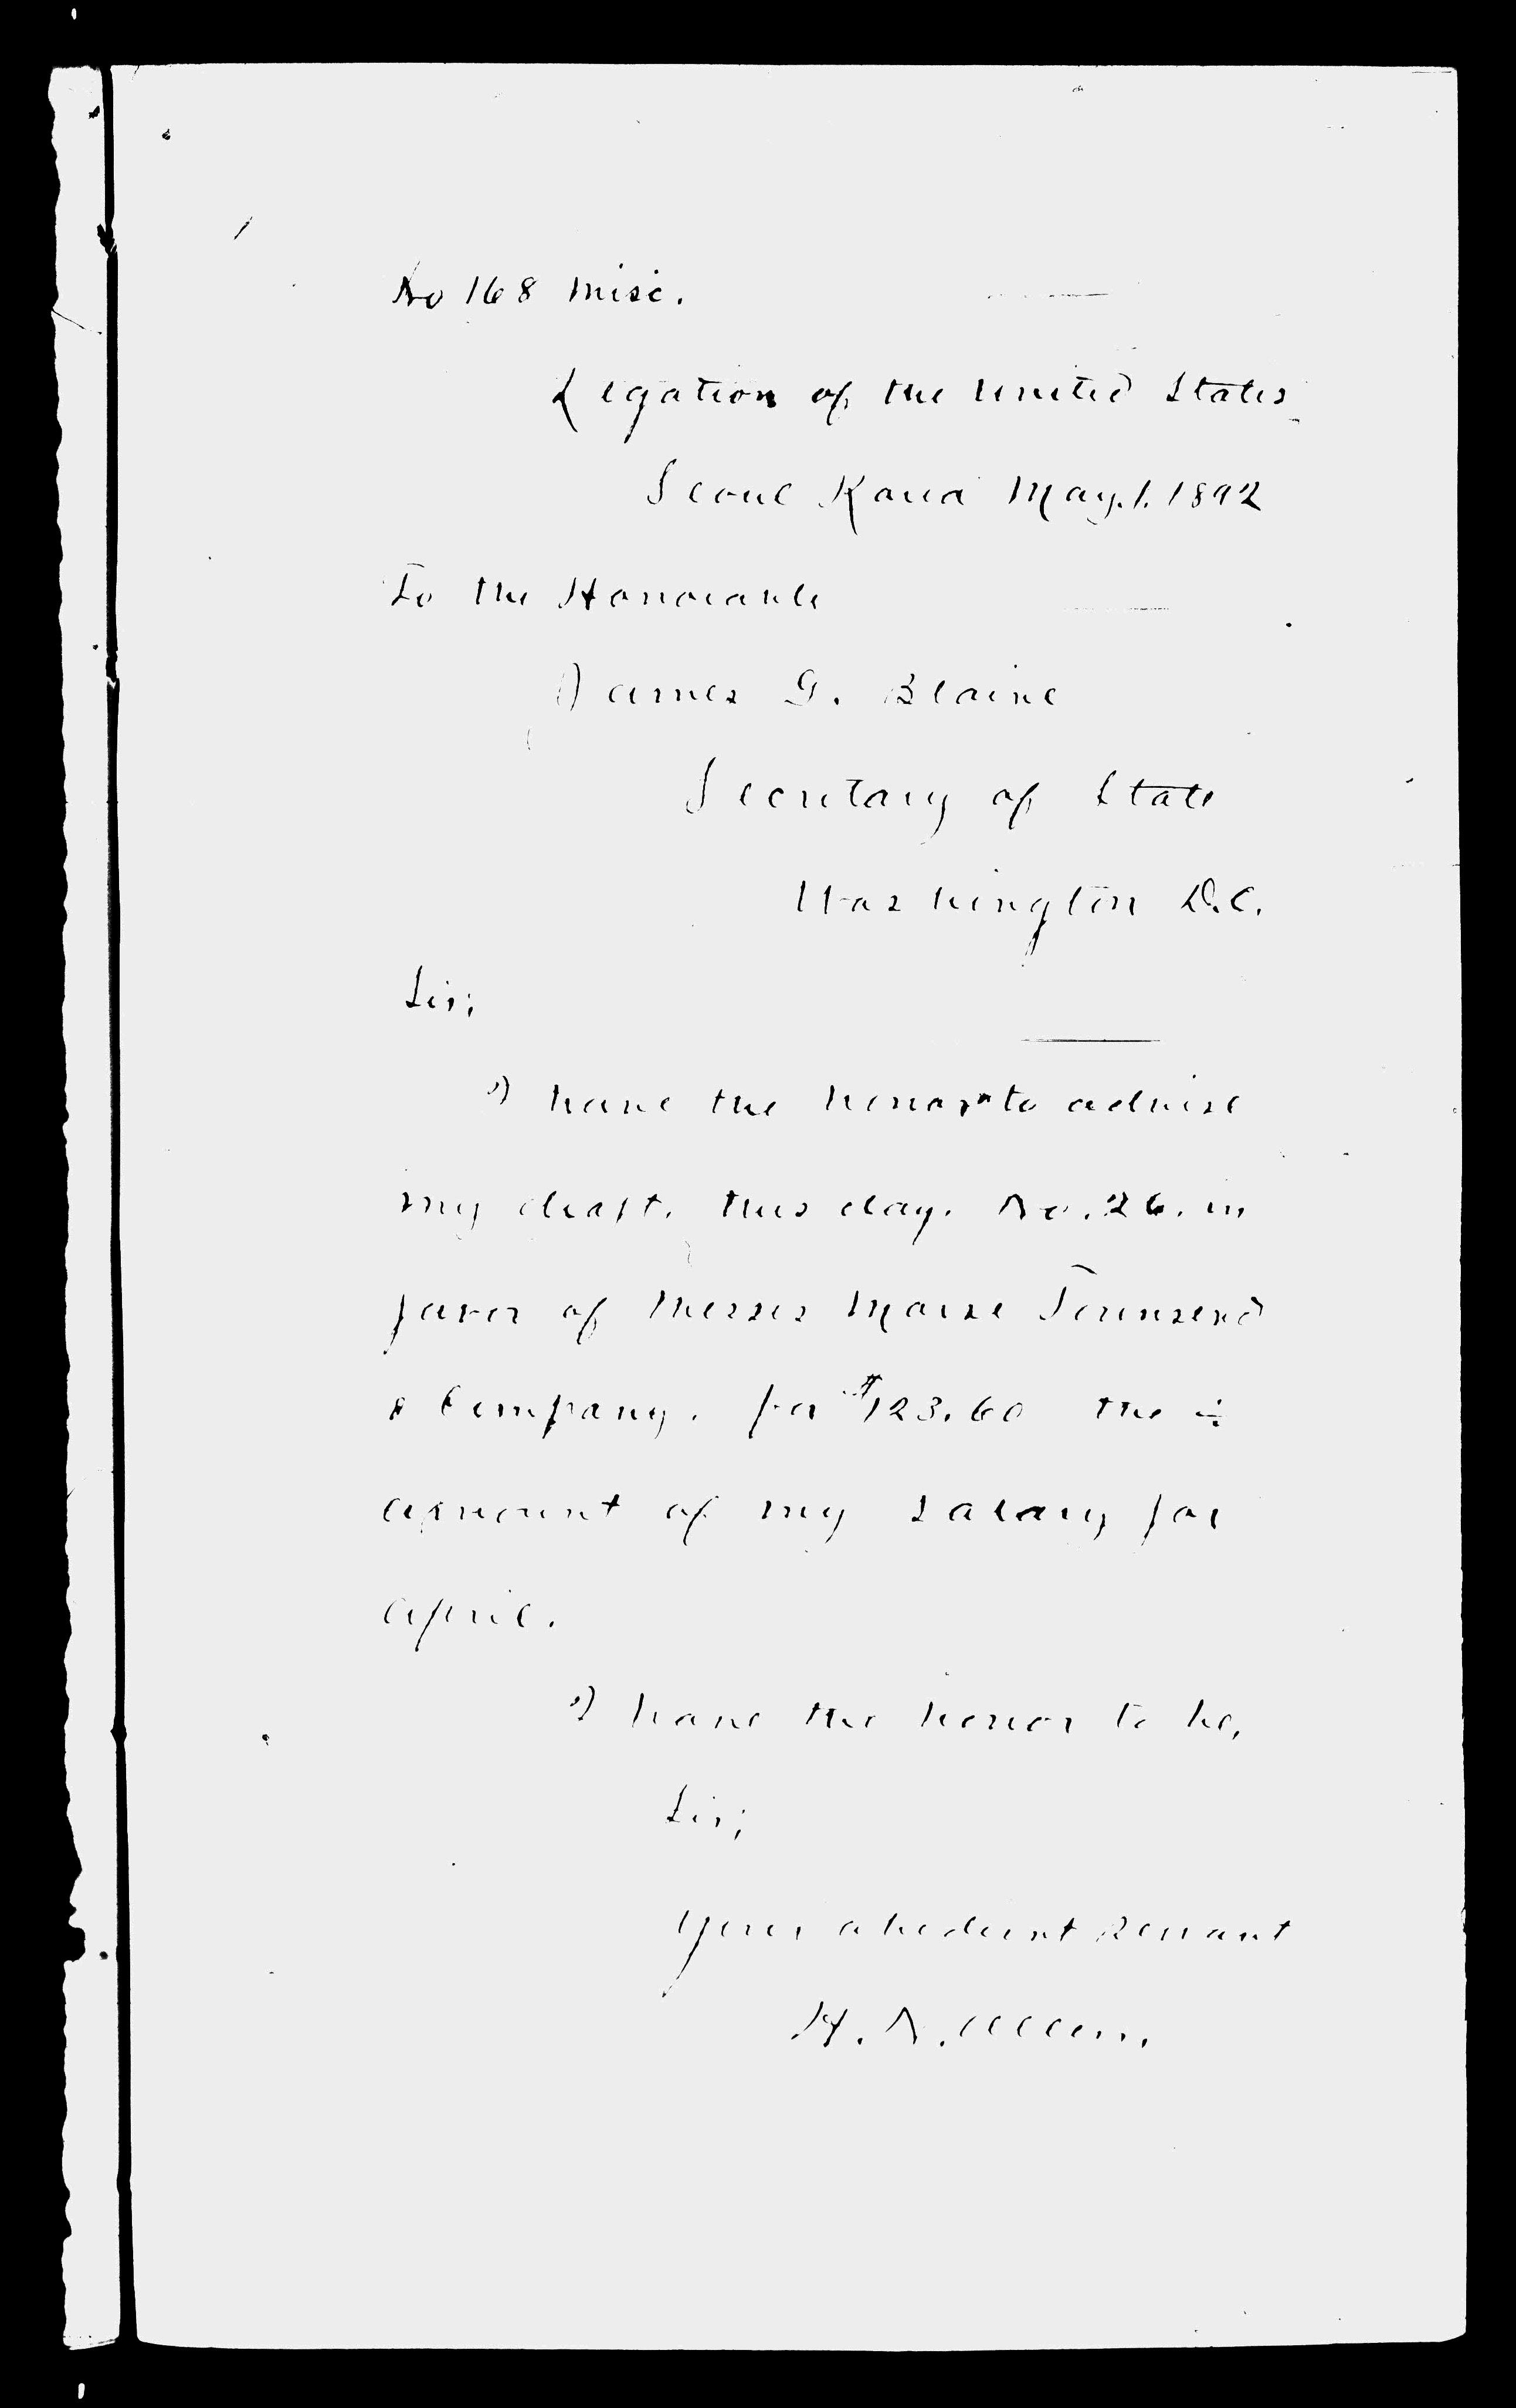 No 168 Misc.
Legation of the United States
Seoul Korea May. 1. 1892
To the Honorable
James G. Blaine
Secretary of State
Washington D.C.
Sir;
I have the honor to advise
my draft, this day. No. 26. in
favor of Messrs Morse Townsend
& Company. for $123.60 the
amount of my salary for
April.
I have the honor to be,
Sir;
Your obedient servant
H. N. Allen.